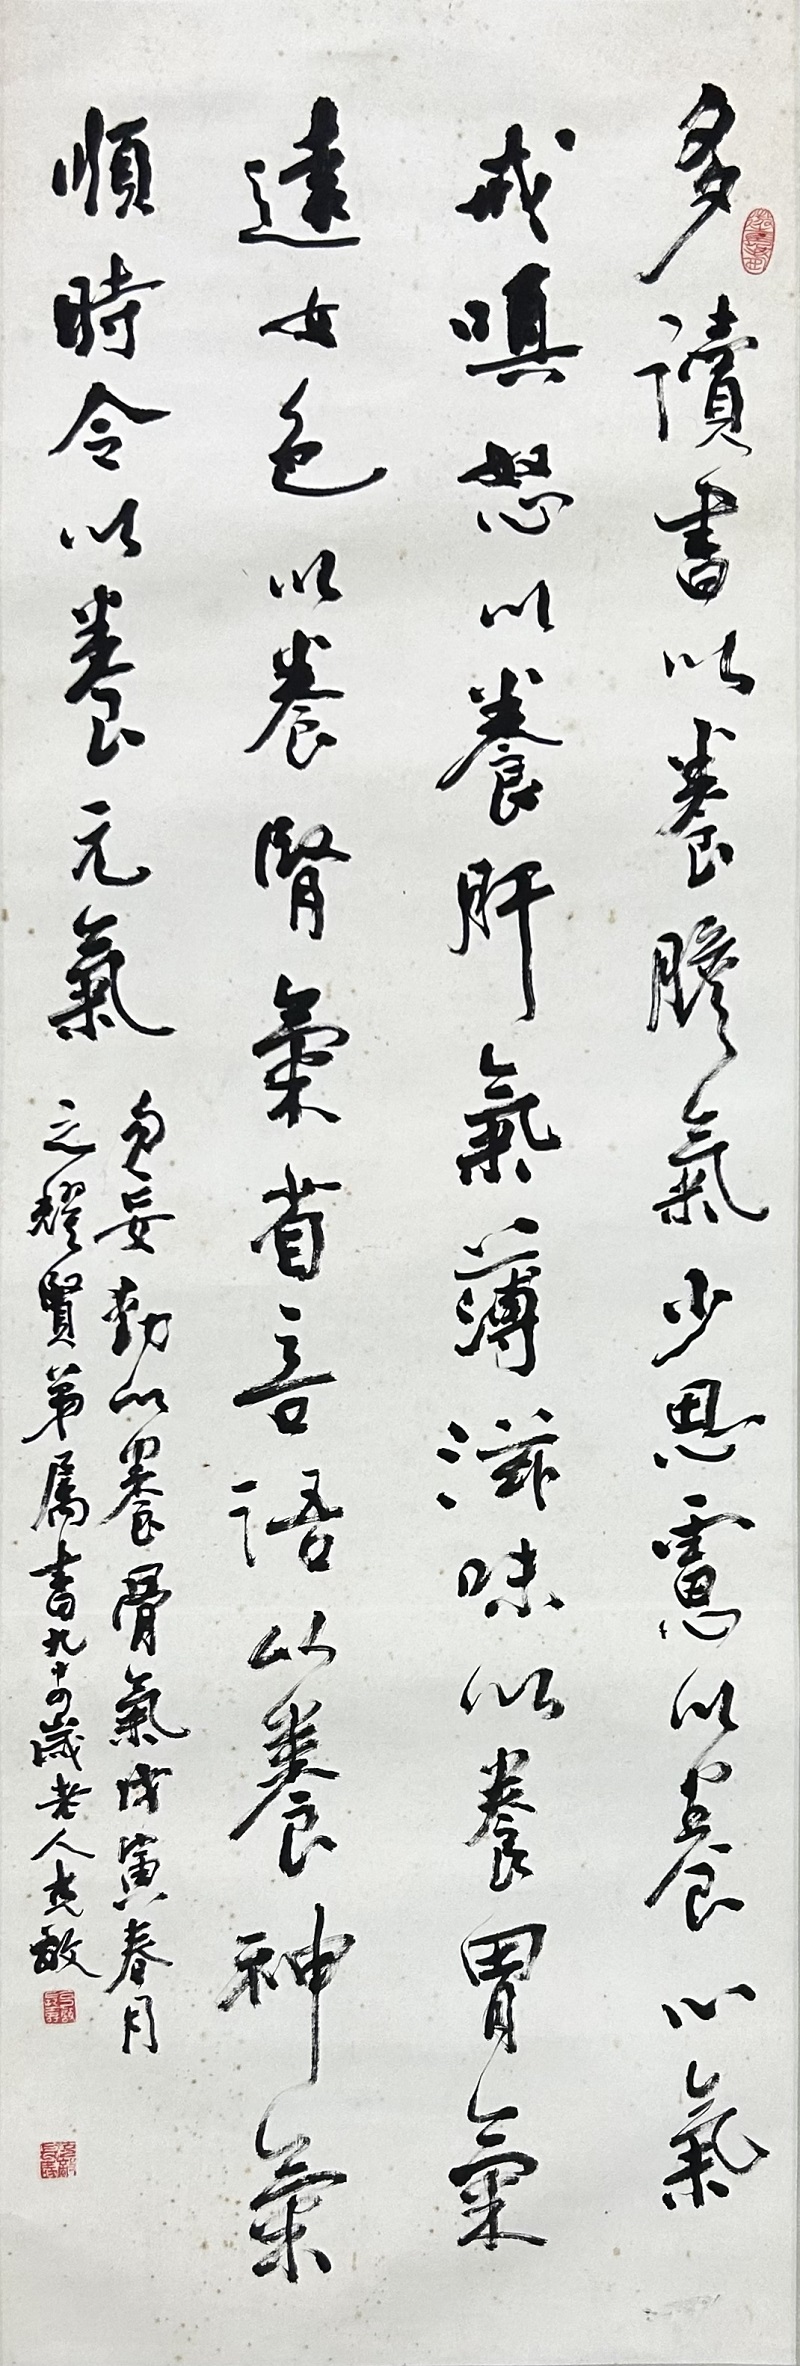 多讀書以養膽氣少思慮以養心氣
戒嗔怒以養肝氣薄滋味以養胃氣
遠女色以養腎氣省言語以養神氣
順時令以養元氣
勿妄勤以養骨氣戊寅春月
之耀賢弟屬書九十四歲老人克敏